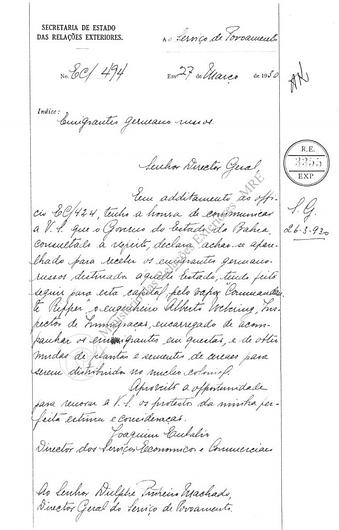 SECRETARIA DE ESTADO
DAS RELAÇÕES EXTERIORES.
Ao Serviço de Povoamento
No. EC/494
Em 27 de Março de 1930
Indice:
Emigrantes germano-russos.
Senhor Director Geral,
R.E.
3355
EXP.
S. G.
26-3-930
Em additamento ao offi-
cio EC/424, tenho a honra de communicar
a V. S. que o Governo do Estado da Bahia,
consultado a respeito, declara achar-se apa-
relhado para receber os emigrantes germano-
russos destinados aquelle Estado, tendo feito
seguir para esta capital, pelo vapor "Commandan-
te Ripper", o engenheiro Alberto, Ins-
pector de Immigração, encarregado de acom-
panhar os emigrantes em questão, e de obter
mudas de plantas e sementes de cereaes para
serem distribuidos no nucleo colonial.
Aproveito a opportunidade
para renovar a V. S. os protestos da minha per-
feita estima e consideração.
Joaquim Eulalio
Director dos Serviços Economicos e Commerciaes
Ao Senhor Dulphe Pinheiro Machado,
Director Geral do Serviço de Povoamento.